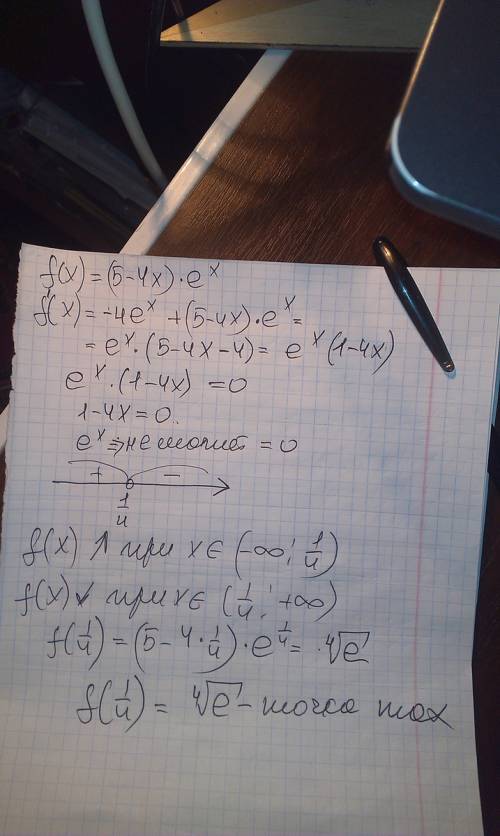 f(x) = (5-4x)·eˣ
f'(x) = -4eˣ + (5-4x)·eˣ =
= eˣ·(5-4x-4) = eˣ(1-4x)
eˣ·(1-4x) = 0
1-4x = 0.
eˣ ⇒ не может = 0
+ -
1/4
f(x) ↑ при x ∈ (-∞; 1/4)
f(x) ↓ при x ∈ (1/4; +∞)
f(1/4) = (5-4·1/4)·e^1/4 = ·⁴√e
f(1/4) = ⁴√e - точка max